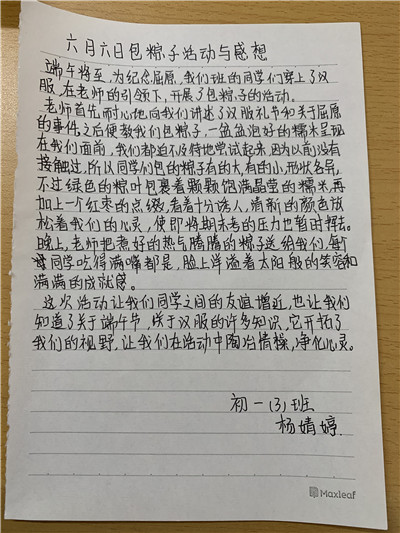 六月六日包粽子活动与感想
端午将至,为纪念屈原,我们班的同学们穿上了汉
服,在老师的引领下,开展了包粽子的活动。
老师首先耐心地向我们讲述了汉服礼节和关于屈原
的事件,之后便教我们包粽子,一盆盆泡好的糯米呈现
在我们面前,我们都迫不及待地尝试起来,因为以前没有
接触过,所以同学们包的粽子有的大,有的小,形状各异,
不过绿色的粽叶包裹着颗颗饱满晶莹的糯米,再
加上一个红枣的点缀,看着十分诱人,清新的颜色放
松着我们的心灵,使即将期末考的压力也暂时挥去。
晚上,老师把煮好的热气腾腾的粽子送给我们,每个
同学吃得满嘴都是,脸上洋溢着太阳般的笑容和
满满的成就感。
这次活动让我们同学之间的友谊增近,也让我们
知道了关于端午节,关于汉服的许多知识,它开拓了
我们的视野,让我们在活动中陶冶情操,净化心灵。
初一(3)班
杨婧婷
Maxleaf